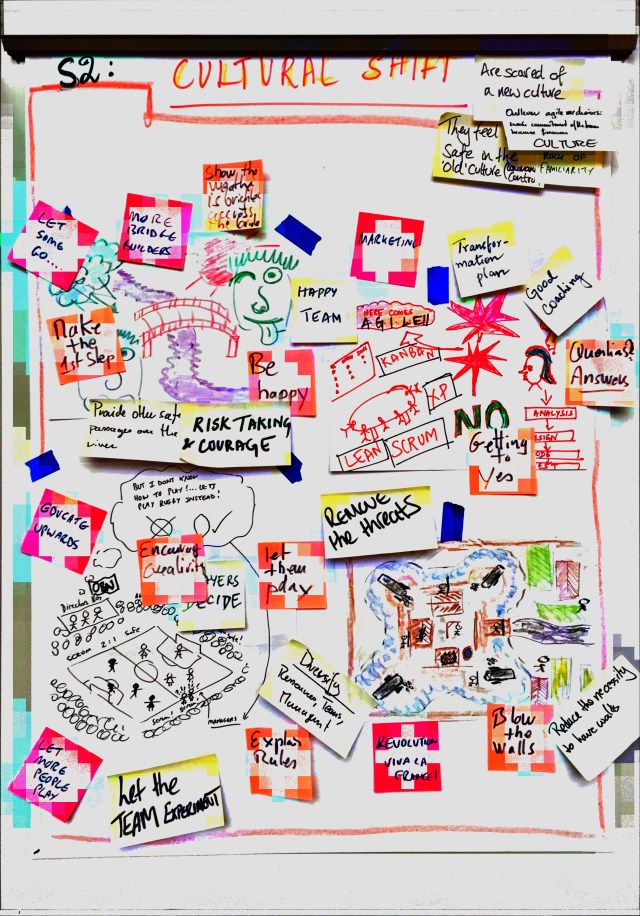 S2:
CULTURAL SHIFT
Are scared of
a new culture
CULTURE
They feel
safe in the
'old' culture
FAMILIARITY
Show the
LET
SOME
GO...
MORE
BRIDGE
BUILDERS
MARKETING
Transfor-
mation
plan
Good
coaching
HAPPY
TEAM
HERE COMES
AGILE!!
Make
the
1st Step
Be
happy
KANBAN
XP
LEAN
SCRUM
NO
Getting
to
yes
Answers
ANALYSIS
Provide other safe
passages over the
river
RISK TAKING
& COURAGE
BUT I DONT KNOW
HOW TO PLAY!... LETS
PLAY RUGBY INSTEAD!
EDUCATE
UPWARDS
REMOVE
the threats
Encourage
Creativity
DECIDE
Let
them
play
Directors Box
SCRUM 2:1
MANAGERS
Diversify
Resources, Teams,
Management
Explain
Rules
REVOLUTION
VIVA LA
FRANCE!
Blow
the
walls
Reduce the necessity
to have walls
LET
MORE
PEOPLE
PLAY
Let the
TEAM EXPERIMENT